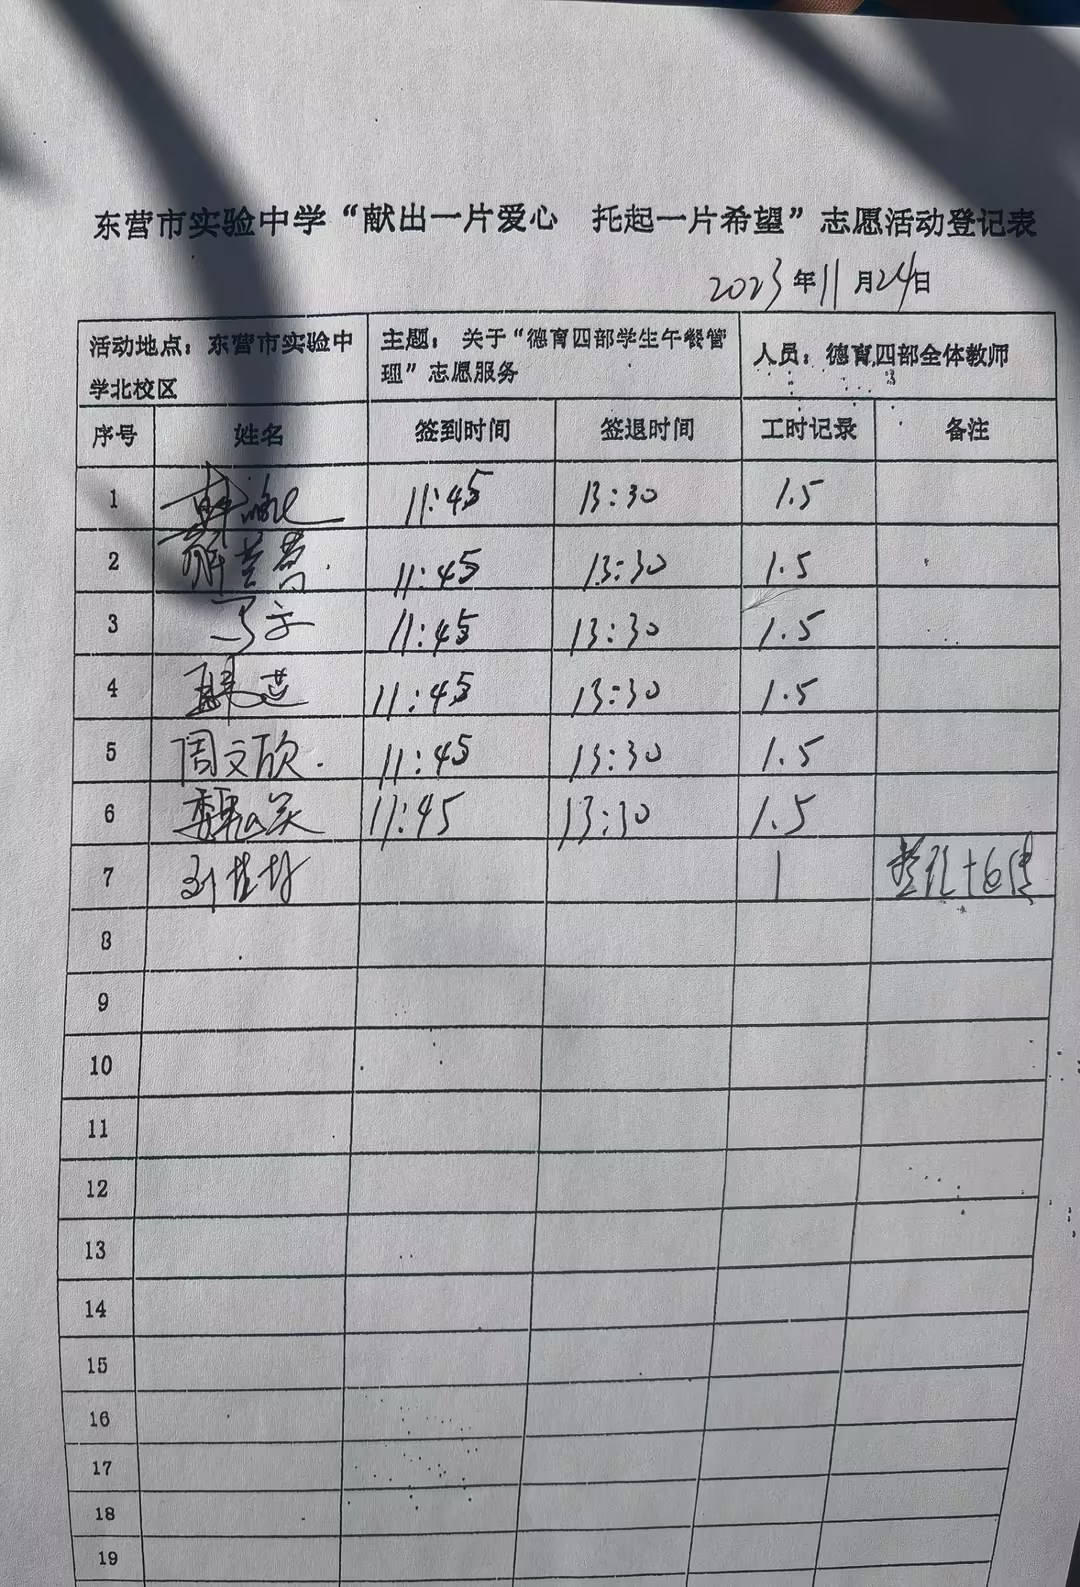 东营市实验中学“献出一片爱心 托起一片希望”志愿活动登记表
2023年11月24日
活动地点：东营市实验中学北校区 主题：关于“德育四部学生午餐管理”志愿服务 人员：德育四部全体教师
序号 姓名 签到时间 签退时间 工时记录 备注
1 11:45 13:30 1.5
2 11:45 13:30 1.5
3 11:45 13:30 1.5
4 11:45 13:30 1.5
5 周文欣 11:45 13:30 1.5
6 11:45 13:30 1.5
7 1 整理+宣传
8
9
10
11
12
13
14
15
16
17
18
19